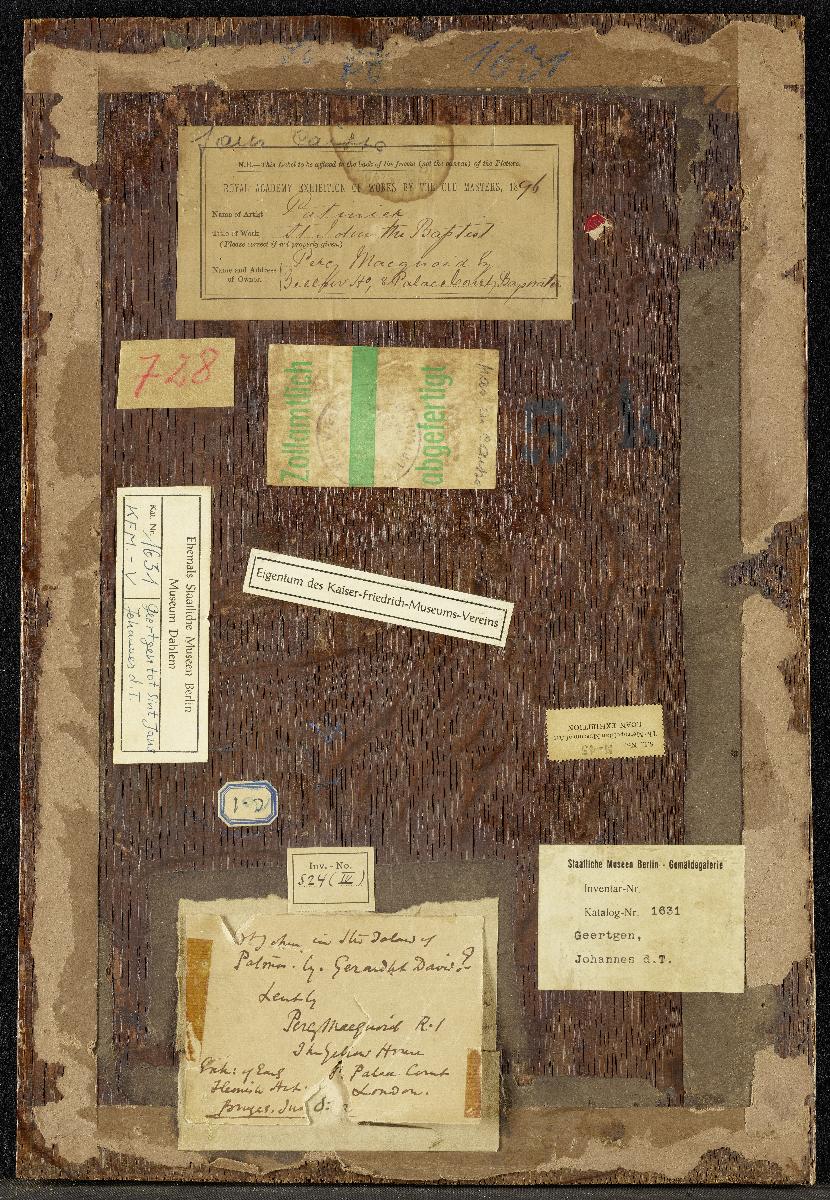 1631
N.B.—This Label to be affixed to the back of the frame (not the canvas) of the Picture.
ROYAL ACADEMY EXHIBITION OF WORKS BY THE OLD MASTERS, 1896
Name of Artist Patinier
Title of Work St. John the Baptist
(Please correct if not properly given.)
Name and Address Percy Macquoid Esq
of Owner. 8 Palace Court, Bayswater
728
Zollamtlich
abgefertigt
Ehemals Staatliche Museen Berlin
Museum Dahlem
Kat. Nr. 1631 Geertgen tot Sint Jans
KFM.-V Johannes d. T.
Eigentum des Kaiser-Friedrich-Museums-Vereins
The Metropolitan Museum of Art
LOAN EXHIBITION
Inv.-No.
524 (IV)
Staatliche Museen Berlin - Gemäldegalerie
Inventar-Nr.
Katalog-Nr. 1631
Geertgen,
Johannes d.T.
St John in the Island of
Patmos. by. Gerardht David?
Lent by
Percy Macquoid R.I
The Yellow House
Exh: of Early 8. Palace Court
Flemish Art. London.
Bruges.